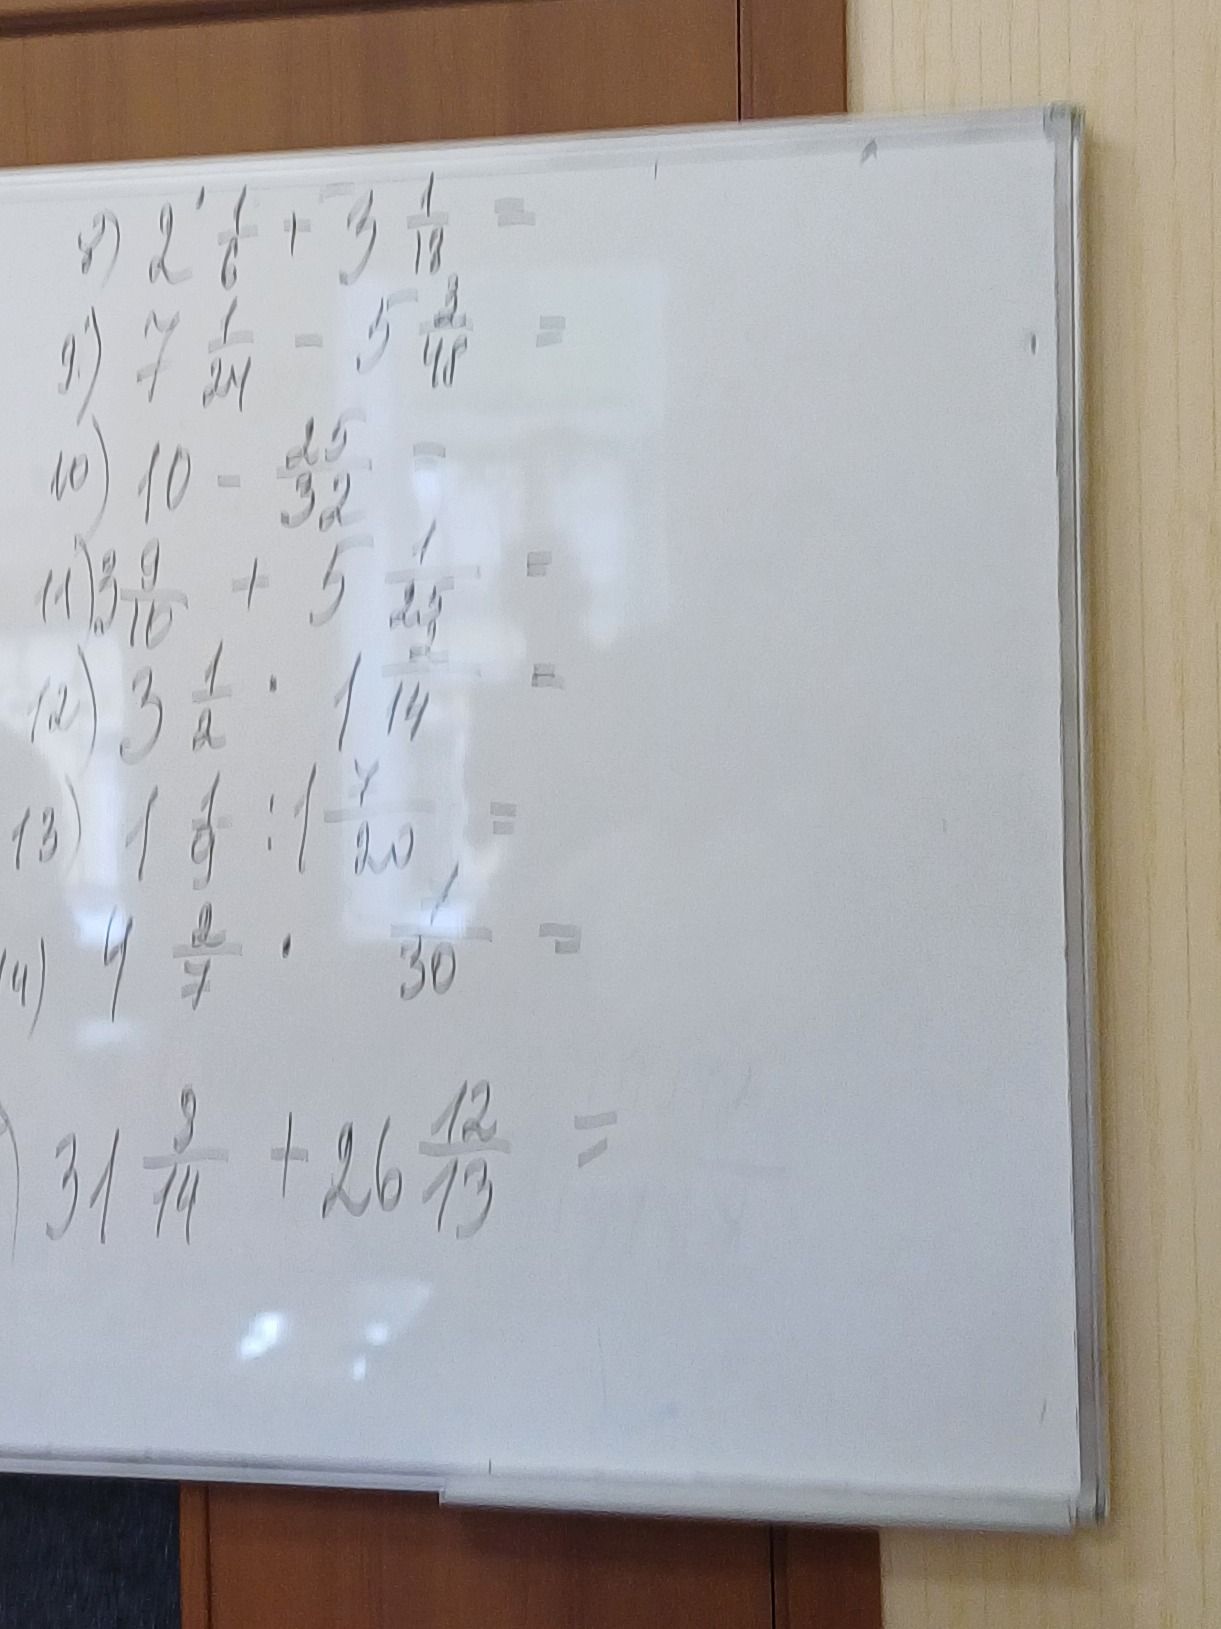 8) 2 1/6 + 3 1/18 =
9) 7 1/24 - 5 3/48 =
10) 10 - 25/32 =
11) 3 9/10 + 5 1/25 =
12) 3 1/2 · 1 2/14 =
13) 1 1/9 : 1 7/20 =
14) 4 2/7 · 7/30 =
) 31 3/14 + 26 12/13 =